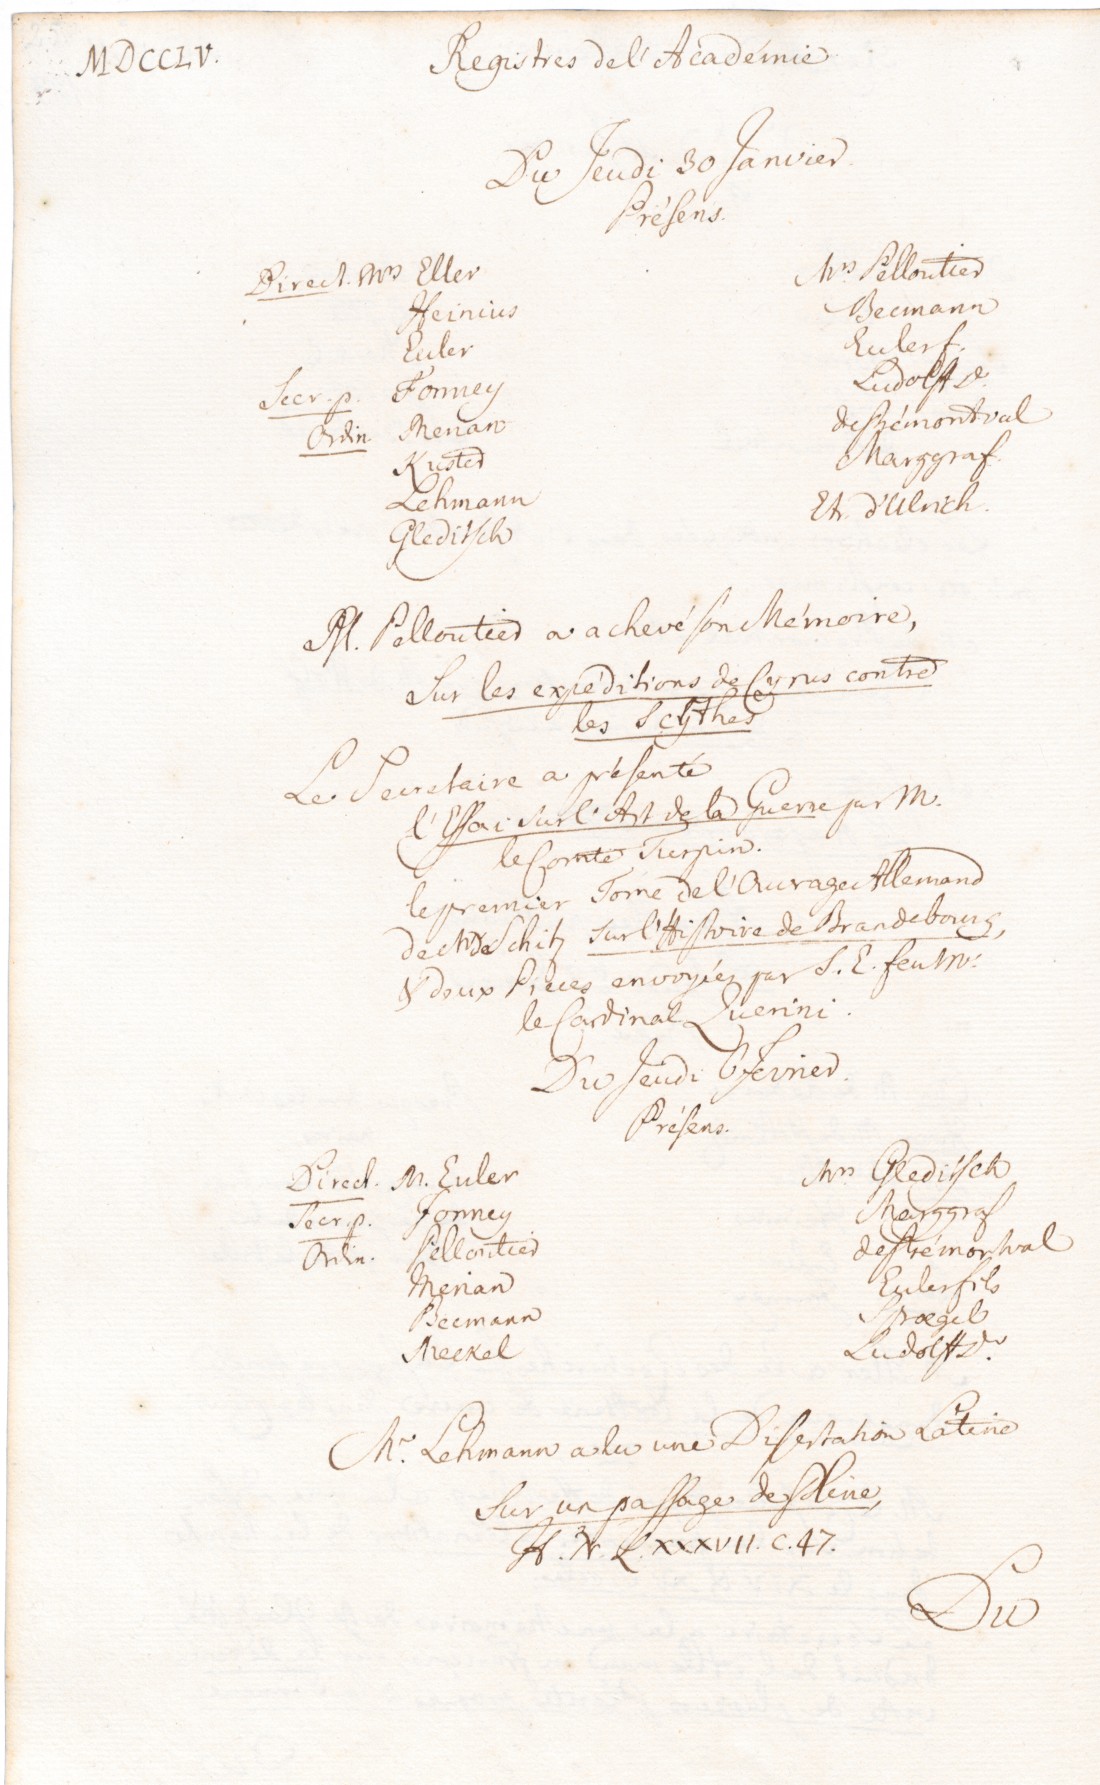 MDCCLV.
Registres de l'Académie
Du Jeudi 30 Janvier.
Présens.
Direct. Mrs Eller
Heinius
Euler
Secr. p. Formey
Ordin. Merian
Kuster
Lehmann
Gleditsch
Mrs Pelloutier
Becmann
Euler f.
Ludolff
de Prémontval
Marggraf.
Etr. d'Ulrich.
M. Pelloutier a achevé son Mémoire,
Sur les expéditions de Cyrus contre
les Scythes
Le Secretaire a présenté
l'Essai sur l'Art de la Guerre par M.
le Comte Turpin.
le premier Tome de l'Ouvrage Allemand
de Mr de Schitz sur l'Histoire de Brandebourg,
& deux Pieces envoyées par S. E. feu Mr.
le Cardinal Querini.
Du Jeudi 6 Fevrier.
Présens.
Direct. M. Euler
Secr. p. Formey
Ordin. Pelloutier
Merian
Becmann
Meckel
Mrs Gleditsch
Marggraf
de Prémontval
Euler fils
Sproegel
Ludolff
Mr. Lehmann a lu une Dissertation Latine
Sur un passage de Pline,
H. N. L. XXXVII. C. 47.
Du